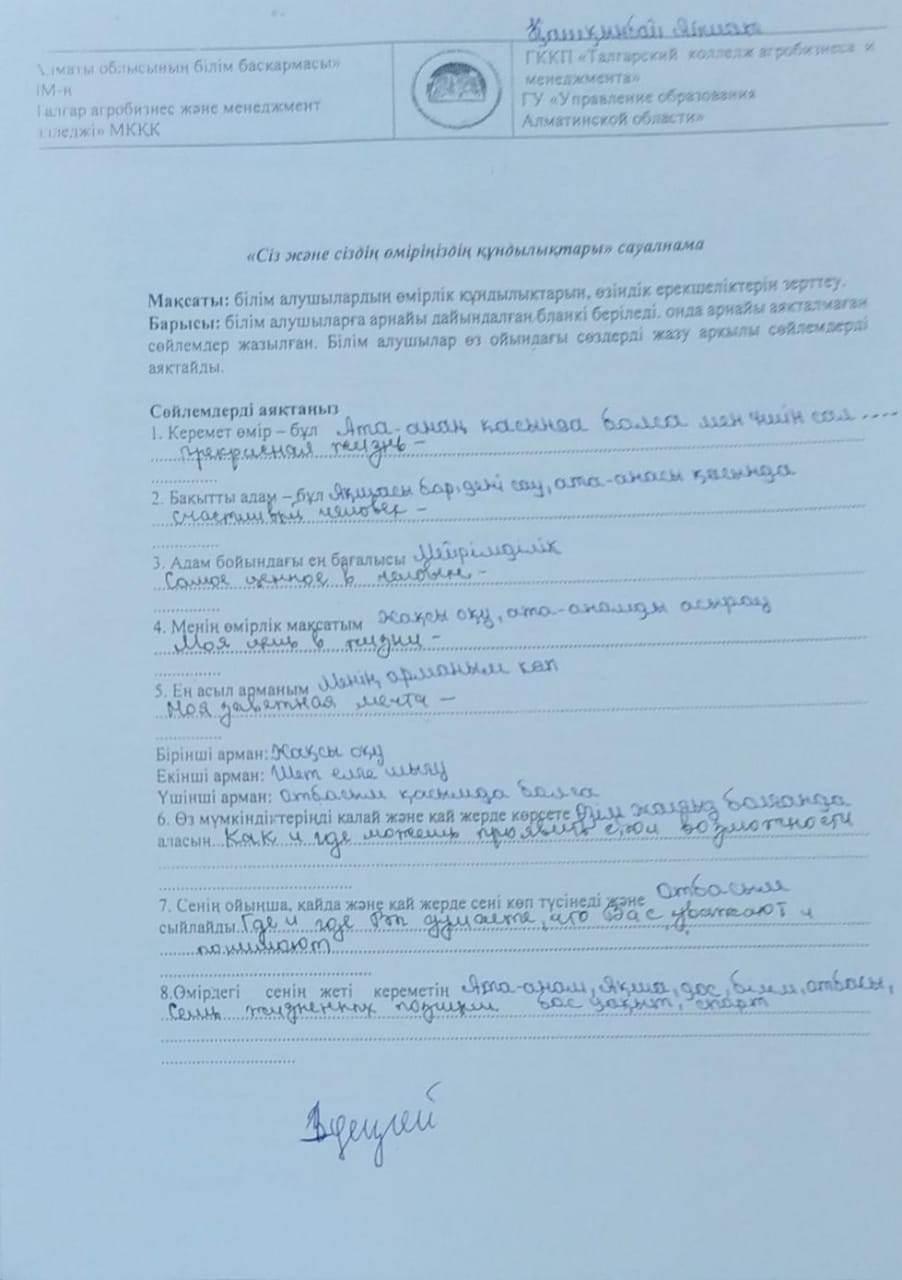 Қашқынбай
Алматы облысының білім басқармасы»
ІМ-н
Талғар агробизнес және менеджмент
МККК
ГККП «Талгарский колледж агробизнеса и
менеджмента»
ГУ «Управление образования
Алматинской области»
«Сіз және сіздің өміріңіздің құндылықтары» сауалнама
Мақсаты: білім алушылардың өмірлік құндылықтарын, өзіндік ерекшеліктерін зерттеу.
Барысы: білім алушыларға арнайы дайындалған бланкі беріледі, онда арнайы аяқталмаған
сөйлемдер жазылған. Білім алушылар өз ойындағы сөздерді жазу арқылы сөйлемдерді
аяқтайды.
Сөйлемдерді аяқтаңыз
1. Керемет өмір – бұл Ата-анаң қасында болса мен үшін сол ....
прекрасная жизнь –
2. Бақытты адам – бұл Ақшасы бар, дені сау, ата-анасы қасында
счастливый человек –
3. Адам бойындағы ең бағалысы Мейрімділік
Самое ценное в человеке –
4. Менің өмірлік мақсатым жақсы оқу, ата-анамды асырау
Моя цель в жизни –
5. Ең асыл арманым Менің арманым көп
Моя заветная мечта –
Бірінші арман: Жақсы оқу
Екінші арман: Шет елге шығу
Үшінші арман: Отбасым қасымда болса
6. Өз мүмкіндіктеріңді қалай және қай жерде көрсете Өзім жалғыз болғанда
аласың Как и где можешь проявить свои возможности
7. Сенің ойыңша, қайда және қай жерде сені көп түсінеді және Отбасым
сыйлайды Где и где Вы думаете, что Вас уважают и
понимают
8.Өмірдегі сенің жеті кереметің Ата-анам, Ақша, дос, білім, отбасы,
Семь жизненных позиции бос уақыт, спорт